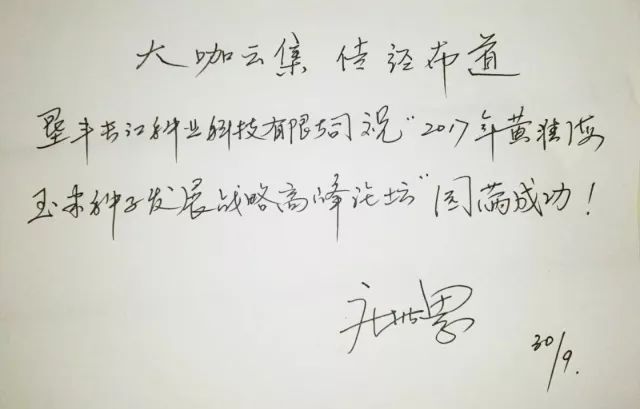 大咖云集 传经布道
垦丰长江种业科技有限公司祝“2017年黄淮海
玉米种子发展战略高峰论坛”圆满成功！
30/9.